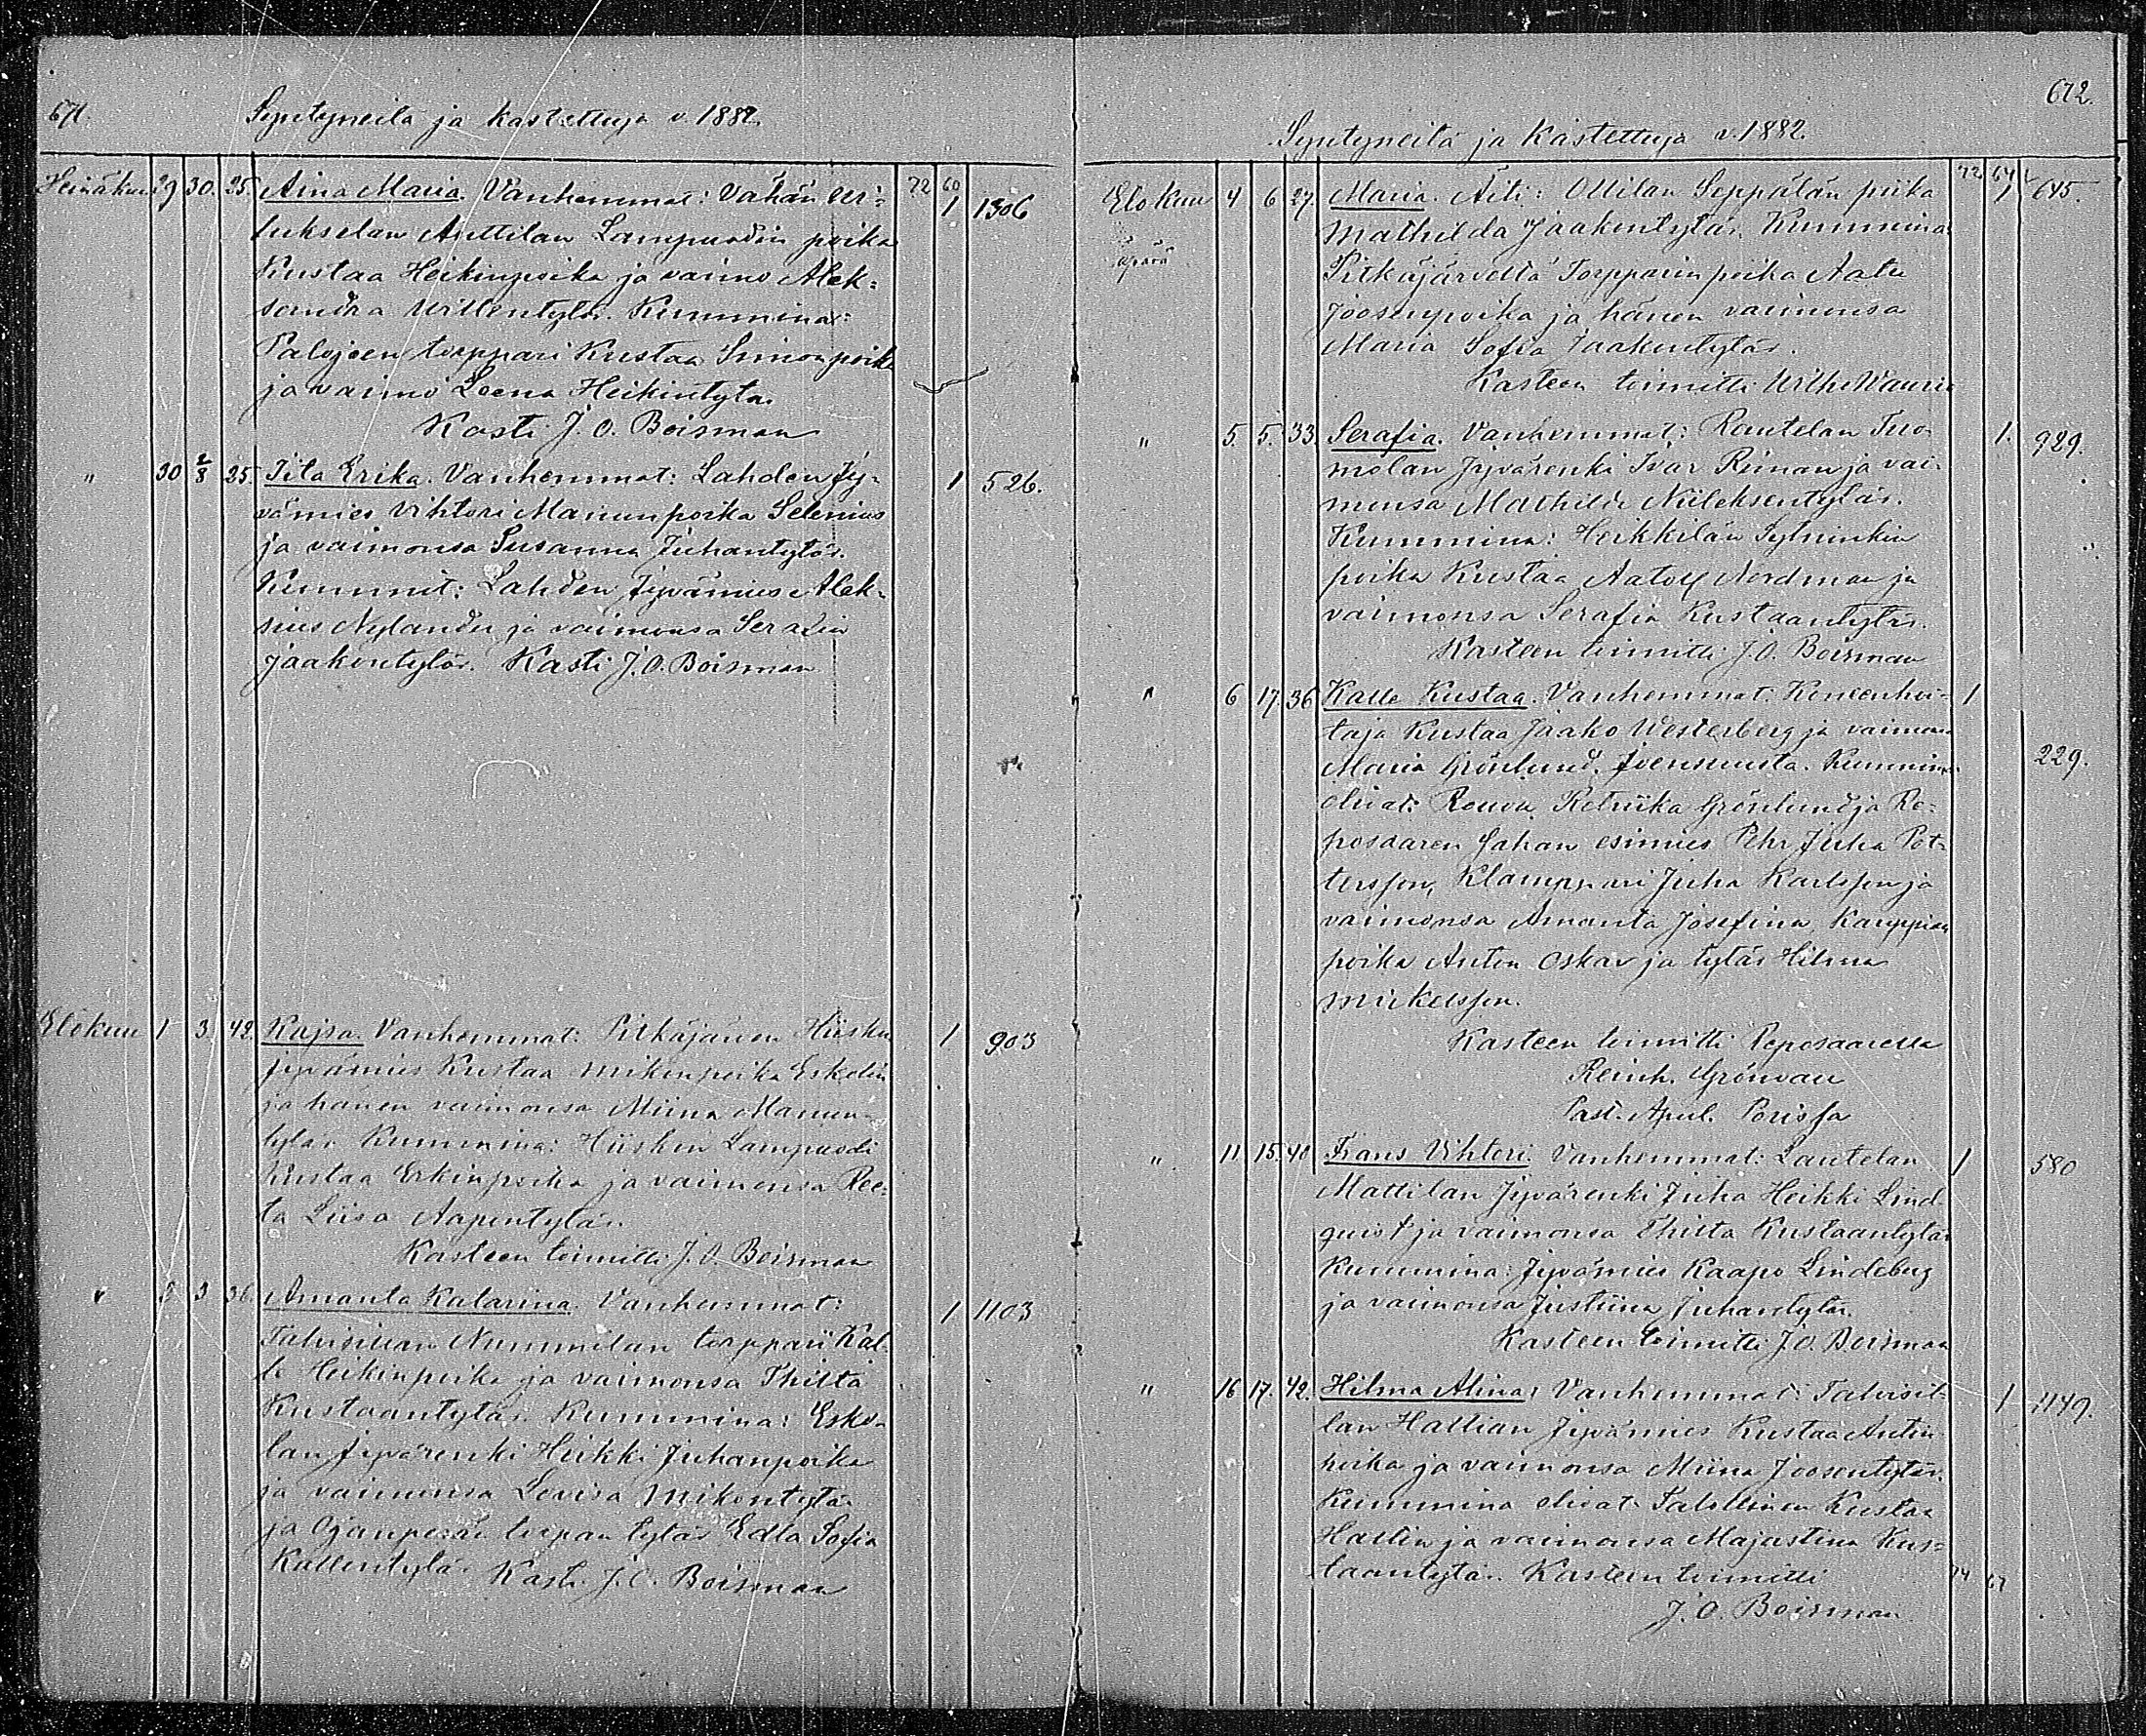 671.
Syntyneitä ja kastettuja v. 1882.
Heinäkuu 29 30. 25. Aina Maria. Vanhemmat: Vähän Ver- 72 60
lukselan Anttilan Lampuodin poika 1 1306
Kustaa Heikinpoika ja vaimo Alek-
sandra Villentytär. Kummina:
Palojoen torppari Kustaa Simonpoika
ja vaimo Leena Heikintytär
Kasti J. O. Boisman
" 30 2/8 25. Iita Erika. Vanhemmat: Lahden Jy- 1 526.
vämies Vihtori Manunpoika Selenius
ja vaimonsa Susanna Juhantytär.
Kummit: Lahden Jyvämies Alek-
sius Nylander ja vaimonsa Serafia
Jaakontytär. Kasti J. O. Boisman
Elokuu 1 3 42. Kajsa. Vanhemmat: Pitkäjärven Hiisku 1 903
jyvämies Kustaa Mikinpoika Eskelin
ja hänen vaimonsa Miina Manun-
tytär. Kummina: Hiiskun Lampuodi
Kustaa Erkinpoika ja vaimonsa Ree-
ta Liisa Aapintytär.
Kasteen toimitti J. O. Boisman
" 3 36. Amanta Katarina. Vanhemmat: 1 1103
Talvisillan Nummilan torppari Kal-
le Heikinpoika ja vaimonsa Thilta
Kustaantytär. Kummina: Esko-
lan Jyvärenki Heikki Juhanpoika
ja vaimonsa Lovisa Mikontytär
ja Ojanperän torpan tytär Edla Sofia
Kallentytär Kasti J. O. Boisman
672.
Syntyneitä ja Kastettuja v. 1882.
Elokuu 4 6 27. Maria. Äiti: Ollilan Seppälän piika 72 64 1 645.
äpärä Mathilda Jaakontytär. Kummina
Pitkäjärveltä Torpparin poika Aatu
Joosenpoika ja hänen vaimonsa
Maria Sofia Jaakontytär.
Kasteen toimitti Wilh. Waurio
" 5. 5. 33 Serafia. Vanhemmat: Rautelan Tuo- 1. 929.
molan Jyvärenki Ivar Reiman ja vai-
monsa Mathilda Niileksentytär.
Kummina: Heikkilän Sytninkin
poika Kustaa Aatolf Nordman ja
vaimonsa Serafia Kustaantytär.
Kasteen toimitti J. O. Boisman
" 6 17. 36 Kalle Kustaa. Vanhemmat: Koneenhoi- 1
taja Kustaa Jaako Westerberg ja vaimonsa
Maria Grönlund, Joensuusta. Kummina 229.
olivat: Rouva Retriika Grönlund ja Re-
posaaren Sahan esimies Pehr Juha Pet-
tersson, Klamppari Juha Karlsson ja
vaimonsa Amanta Josefina, Kauppiaan
poika Anton Oskar ja tytär Hilma
Mickelsson.
Kasteen toimitti Reposaarella
Reinh. Grönvall
Past. Apul. Porissa
" 11 15. 40 Frans Vihtori. Vanhemmat: Lautelan 1 580
Mattilan Jyvärenki Juha Heikki Lind-
quist ja vaimonsa Thilta Kustaantytär
Kummina: Jyvämies Kaapo Lindeberg
ja vaimonsa Justiina Juhantytär.
Kasteen toimitti J. O. Boisman
" 16 17. 42. Hilma Alina. Vanhemmat: Talvisil- 1 1149.
lan Hallian Jyvämies Kustaa Antin-
poika ja vaimonsa Miina Joosentytär.
Kummina olivat: Talollinen Kustaa
Hallin ja vaimonsa Majastina Kus-
taantytär. Kasteen toimitti 74 67
J. O. Boisman